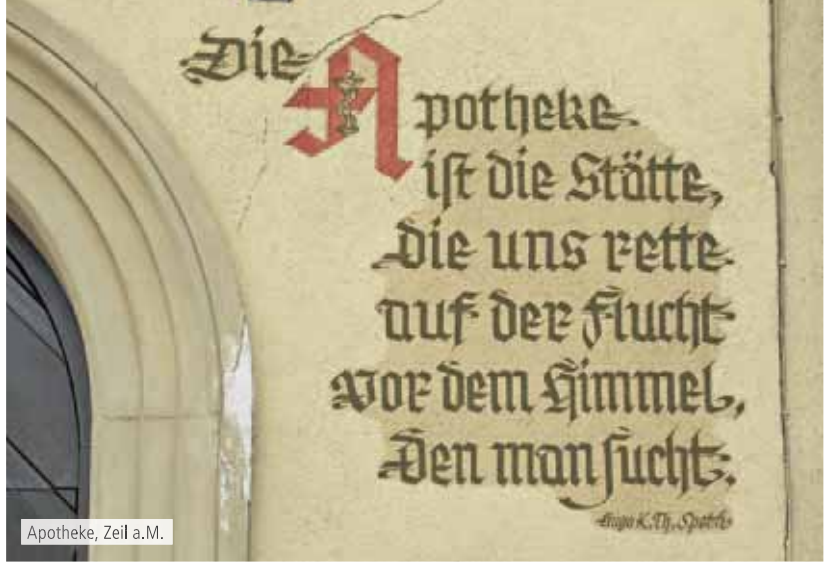 Die
Apotheke
iſt die Stätte,
die uns rette
auf der Flucht
vor dem Himmel,
den man ſucht.
Hugo K. Th. Spoth
Apotheke, Zeil a.M.